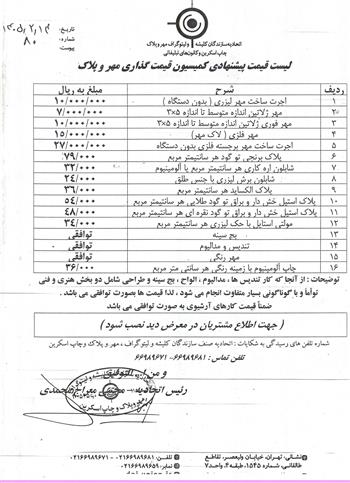 اتحادیه سازندگان کلیشه و لیتوگراف، مهر و پلاک
چاپ اسکرین و کانون‌های تبلیغاتی
تاریخ:
شماره: ۸۰
پیوست:
لیست قیمت پیشنهادی کمیسیون قیمت گذاری مهر و پلاک
ردیف شرح مبلغ به ریال
۱ اجرت ساخت مهر لیزری ( بدون دستگاه ) ۱۰/۰۰۰/۰۰۰
۲ مهر ژلاتین اندازه متوسط تا اندازه ۵×۳ ۷/۰۰۰/۰۰۰
۳ مهر فوری ژلاتین اندازه متوسط تا اندازه ۵×۳ ۱۰/۰۰۰/۰۰۰
۴ مهر فلزی ( لاک مهر ) ۱۵/۰۰۰/۰۰۰
۵ اجرت ساخت مهر برجسته فلزی بدون دستگاه ۲۷/۰۰۰/۰۰۰
۶ پلاک برنجی تو گود هر سانتیمتر مربع ۷۹/۰۰۰
۷ شابلون اره کاری هر سانتیمتر مربع با آلومینیوم ۳۲/۰۰۰
۸ شابلون برش لیزری با جنس طلق ۲۴/۰۰۰
۹ پلاک الکساید هر سانتیمتر مربع ۳۶/۰۰۰
۱۰ پلاک استیل خش دار و براق تو گود طلایی هر سانتیمتر مربع ۵۴/۰۰۰
۱۱ پلاک استیل خش دار و براق تو گود نقره ای هر سانتیمتر مربع ۴۸/۰۰۰
۱۲ مولتی استایل با حک لیزری هر سانتیمتر مربع ۳۴/۰۰۰
۱۳ بج سینه توافقی
۱۴ تندیس و مدالیوم توافقی
۱۵ مهر رنگی توافقی
۱۶ چاپ آلومینیوم با زمینه رنگی هر سانتی متر مربع ۳۶/۰۰۰
توضیحات : از آنجا که کار تندیس ها ، مدالیوم ، الواح ، بج سینه و طراحی شامل دو بخش هنری و فنی
توأماً و با گوناگونی بسیار متفاوت انجام می شود ، لذا قیمت ها بصورت توافقی می باشد
ضمناً قیمت کارهای آرشیوی به صورت توافقی می باشد
( جهت اطلاع مشتریان در معرض دید نصب شود )
شماره تلفن های رسیدگی به شکایات : اتحادیه صنف سازندگان کلیشه و لیتوگراف ، مهر و پلاک وچاپ اسکرین
تلفن تماس : ۶۶۹۸۹۶۸۱-۶۶۹۸۹۶۷۱
و من
رئیس اتحادیه
نشانی: تهران، خیابان ولیعصر، تقاطع
طالقانی، شماره ۱۵۴۵، طبقه ۴، واحد ۷
تلفن: ۰۲۱۶۶۹۸۹۶۷۱ - ۰۲۱۶۶۹۸۹۶۸۱
نمابر: ۰۲۱۶۶۹۸۹۶۵۹